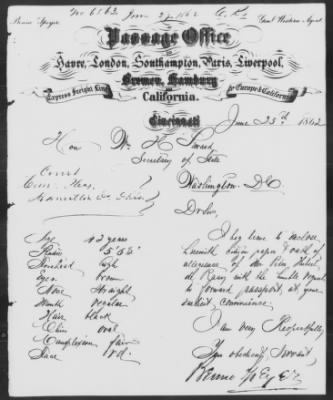 No 6162 June 27 1862
Benno Speyer Genl Western Agent
Passage Office
Havre, London, Southampton, Paris, Liverpool,
Bremen, Hamburg
Express Freight Line to Europe & California
California.
Cincinnati June 25th 1862
Hon Wm H Seward
Secretary of State
Washington D.C.
Court
Com. Pleas
Hamilton Co Ohio
Dr Sir,
I beg leave to enclose
herewith citizen paper & oath of
allegiance of
with the humble request
to forward passport, at your
earliest convenience.
I am very Respectfully
Your obedient Servant,
Benno Speyer
Age 42 years
Stature 5' 6½"
Forehead high
Eyes brown
Nose straight
Mouth regular
Hair black
Chin oval
Complexion fair
Face